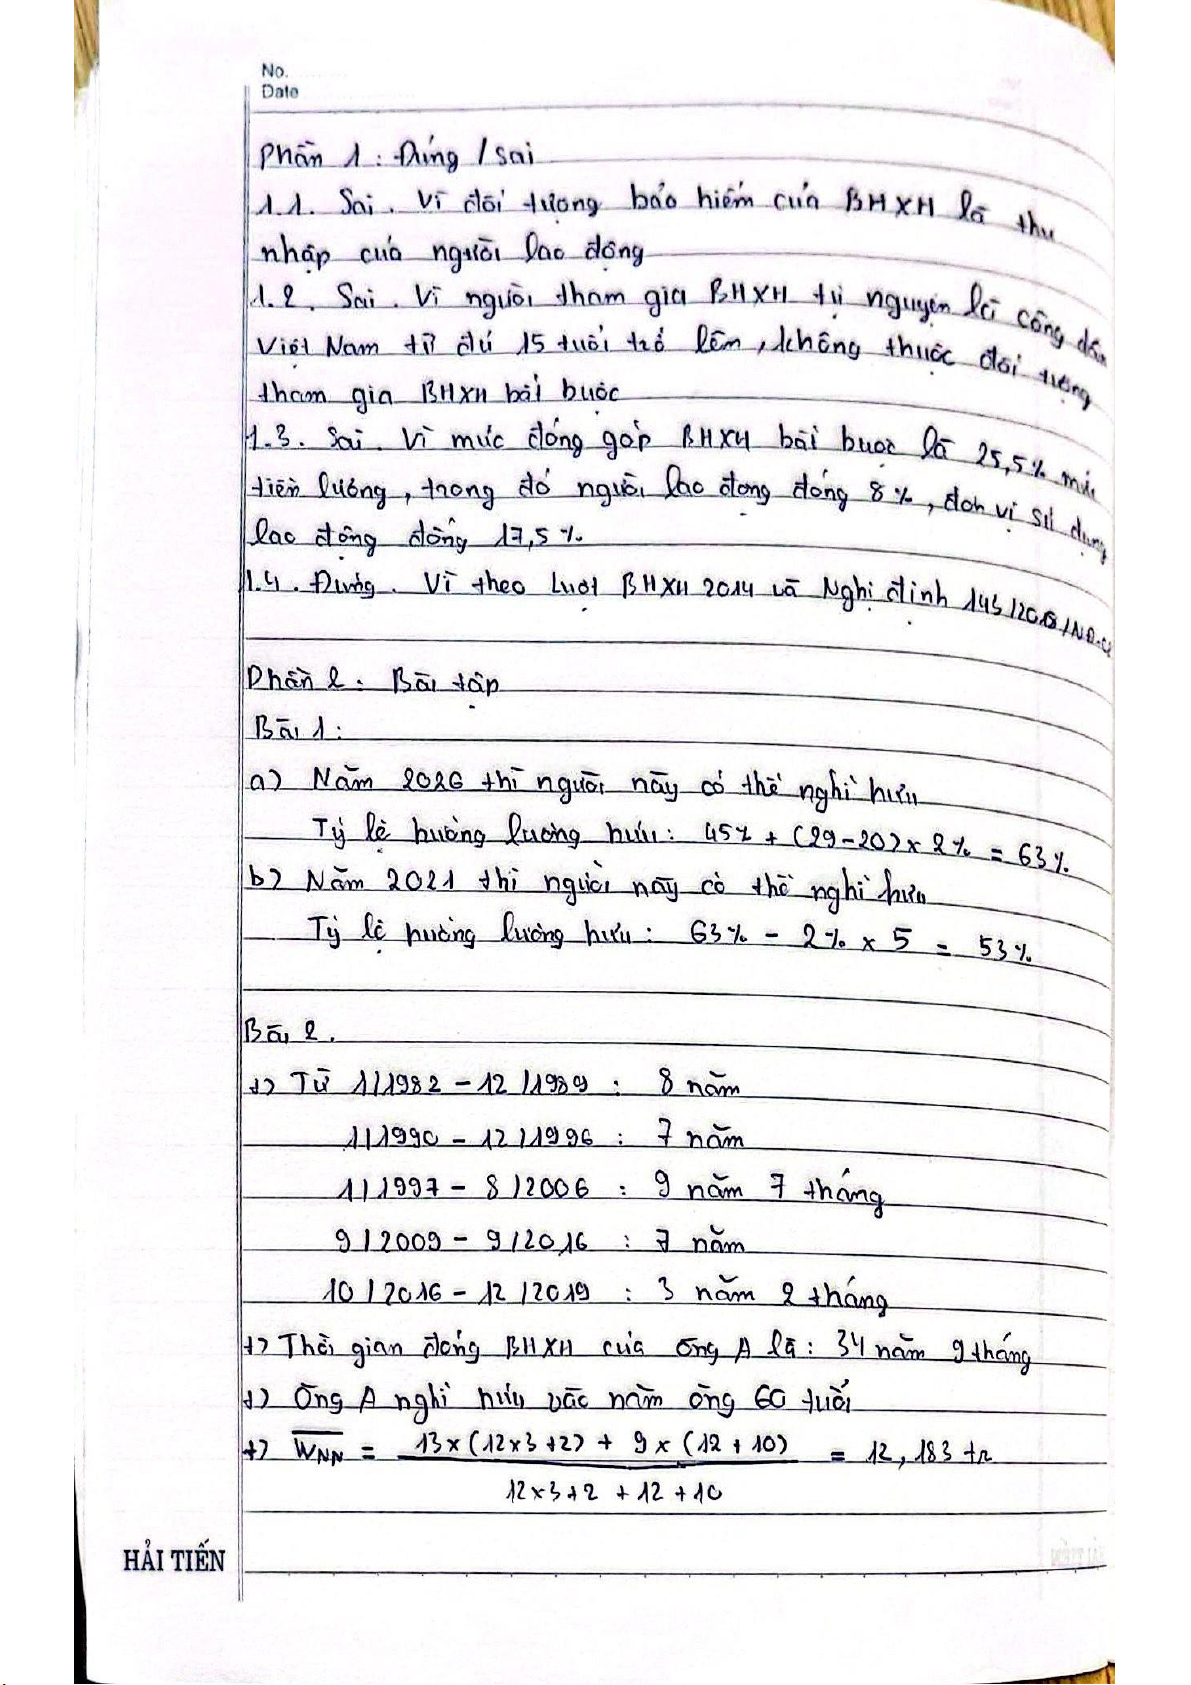 No.
Date
Phần 1 : Đúng / sai
1.1. Sai. Vì đối tượng bảo hiểm của BHXH là thu
nhập của người lao động
1.2. Sai. Vì người tham gia BHXH tự nguyện là công dân
Việt Nam từ đủ 15 tuổi trở lên, không thuộc đối tượng
tham gia BHXH bắt buộc
1.3. Sai. Vì mức đóng góp BHXH bắt buộc là 25,5% mức
tiền lương, trong đó người lao động đóng 8%, đơn vị sử dụng
lao động đóng 17,5%.
1.4. Đúng. Vì theo Luật BHXH 2014 và Nghị định
Phần 2 : Bài tập
Bài 1 :
a) Năm 2026 thì người này có thể nghỉ hưu
Tỷ lệ hưởng lương hưu : 45% + (29-20) x 2% = 63%
b) Năm 2021 thì người này có thể nghỉ hưu
Tỷ lệ hưởng lương hưu : 63% - 2% x 5 = 53%
Bài 2.
+) Từ 1/1982 - 12/1989 : 8 năm
1/1990 - 12/1996 : 7 năm
1/1997 - 8/2006 : 9 năm 7 tháng
9/2009 - 9/2016 : 7 năm
10/2016 - 12/2019 : 3 năm 2 tháng
+) Thời gian đóng BHXH của ông A là : 34 năm 9 tháng
+) Ông A nghỉ hưu vào năm ông 60 tuổi
+) W̅NN = 13x(12x3+2) + 9x(12+10) = 12,183 tr
12x3+2 + 12+10
HẢI TIẾN